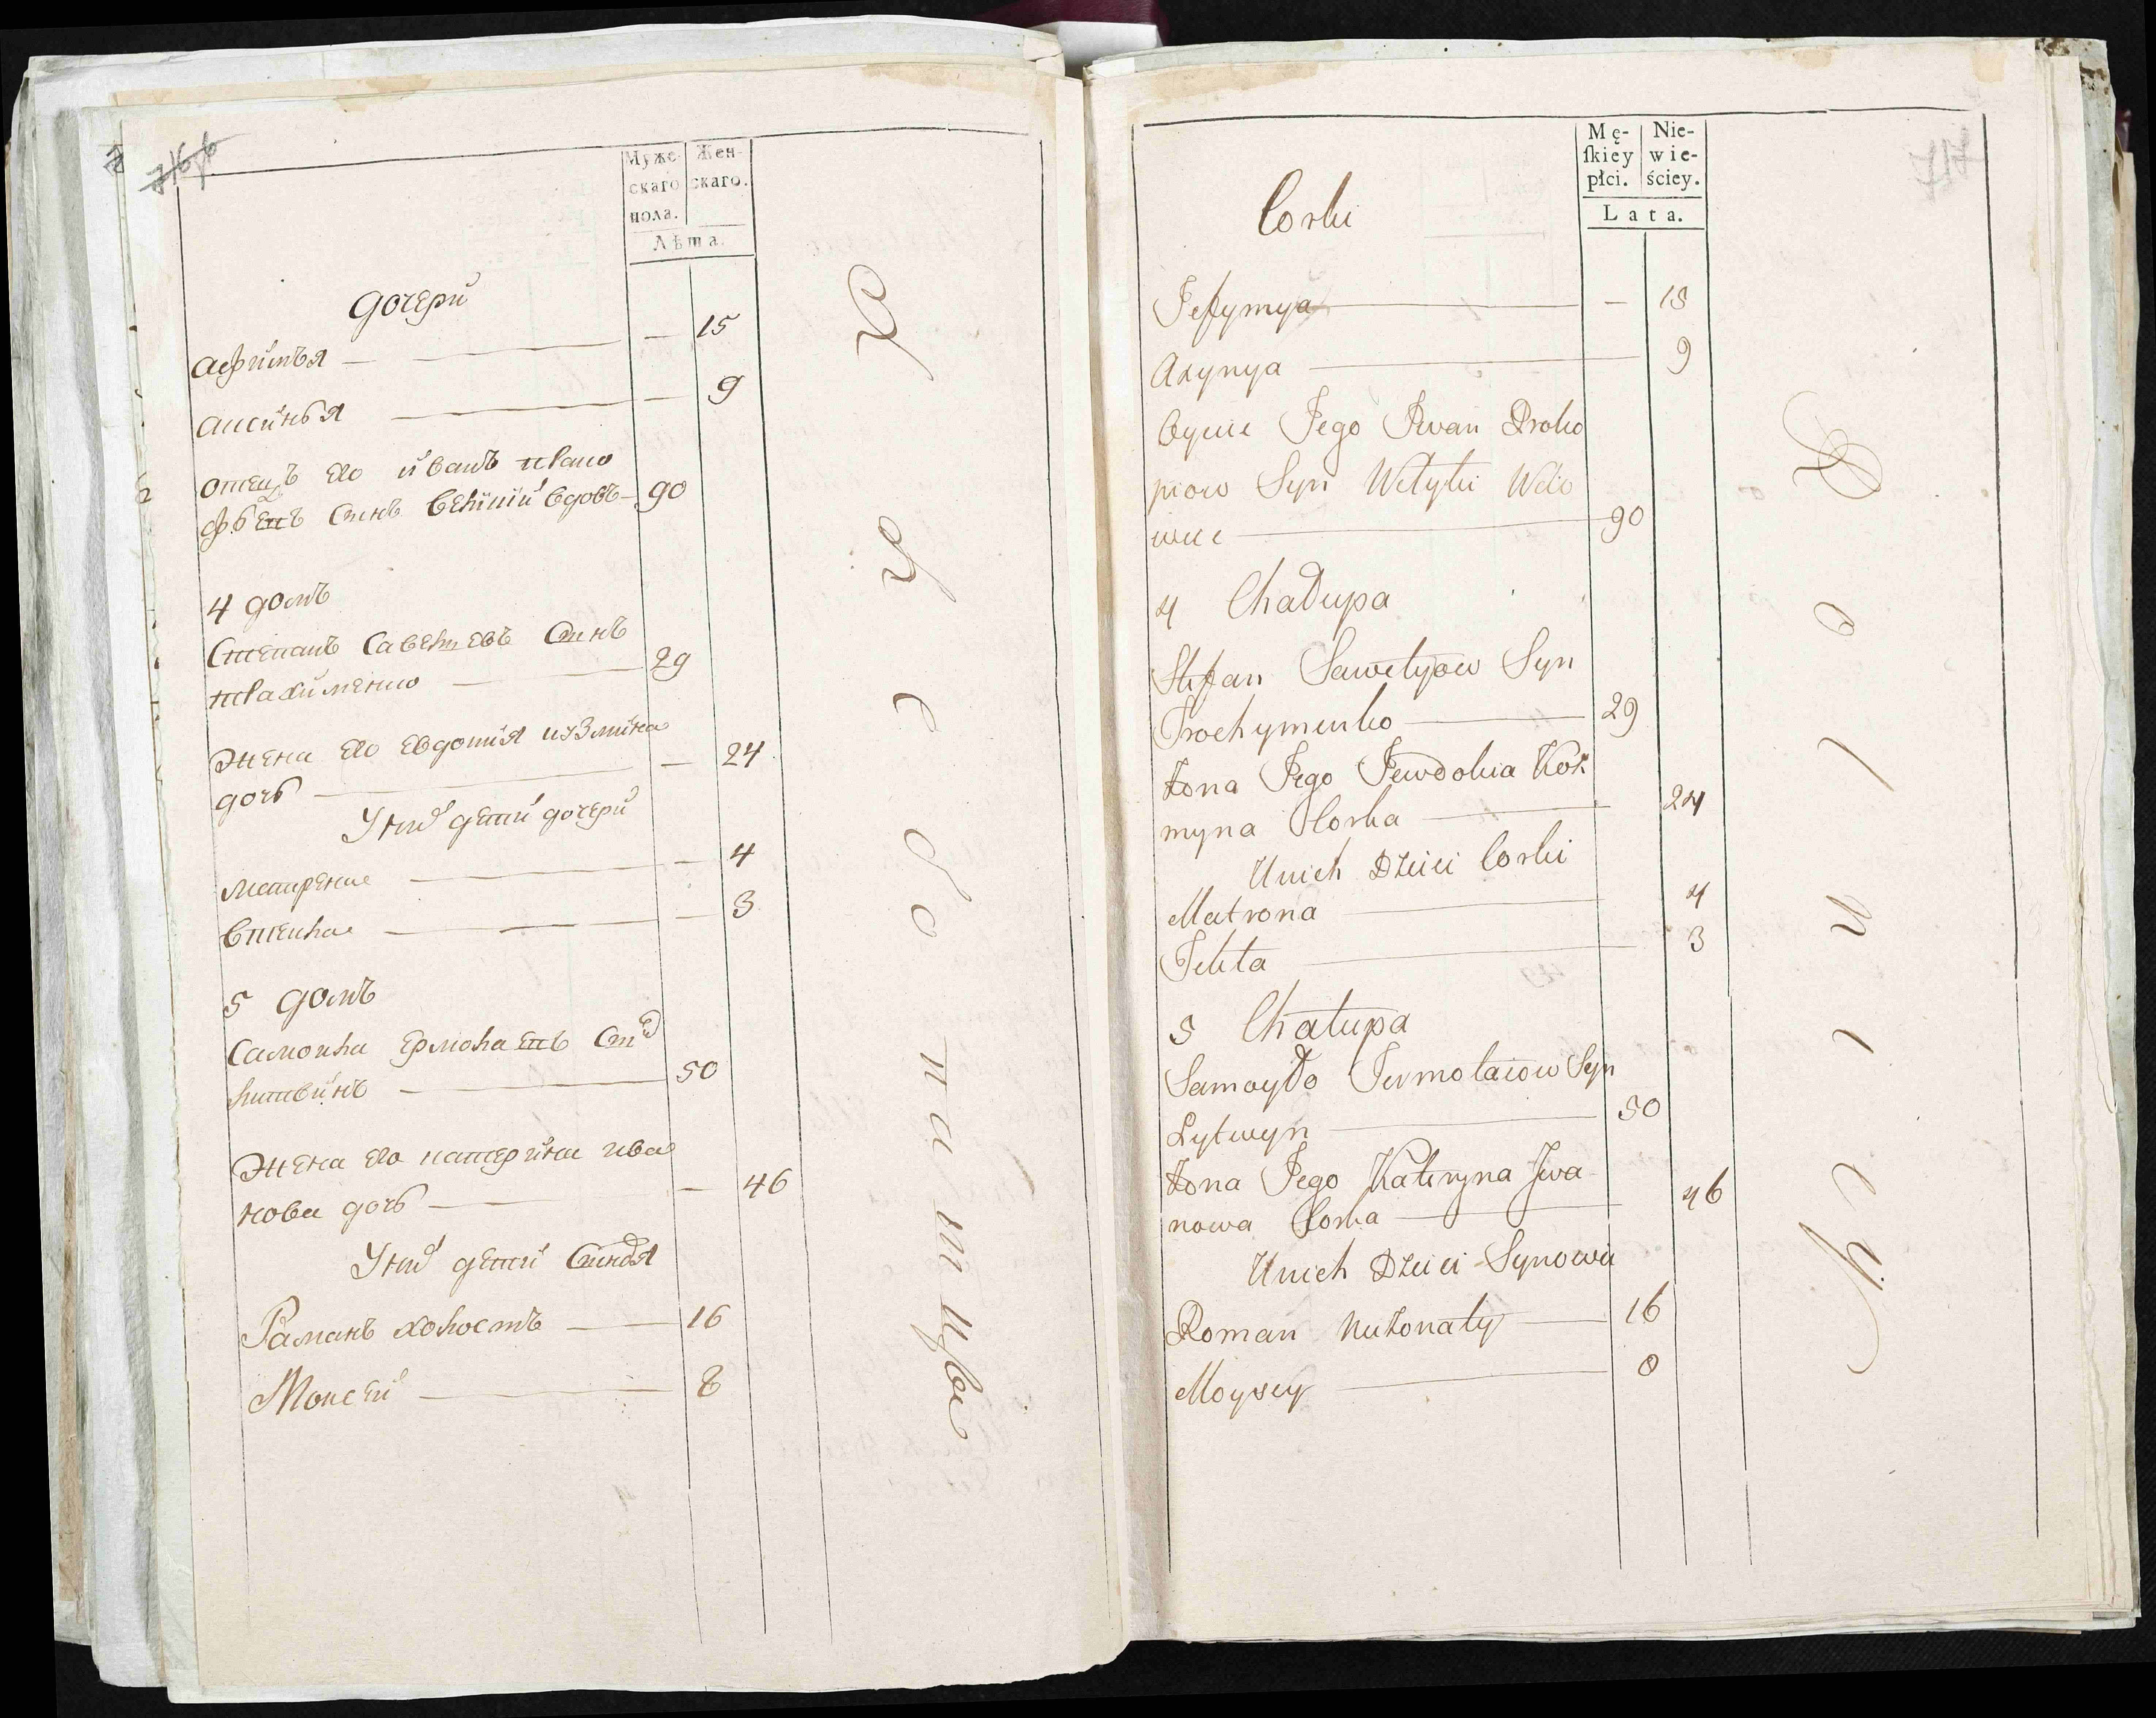 Муже- Жен-
скаго скаго.
пола.
Лѣта.
дочери
Афимья — 15
Аксинья — 9
отецъ его иванъ проко
фьевъ сынъ великий вдовъ 90
4 домъ
Степанъ Савельевъ сынъ
трахименко 29
жена его евдокия кузмина
дочь — 24
У них дети дочери
матрена — 4
5 домъ
Самойла Ермолаевъ сын
литвинъ 50
жена его катерина ива
нова дочь — 46
У них дети сыновя
Раманъ холостъ 16
Моисей 8
Mę- Nie-
ſkiey wie-
płci. ściey.
Lata.
Corki
Jefymya — 15
Axynya 9
Oycie Jego Iwan Proko
piow Syn Welyki Wdo
wiec 90
4 Chałupa
Stefan Sawelyow Syn
Trochymenko 29
Żona Jego Jewdokia Koż
myna Corka 24
Unich Dzieci Corki
Matrona 4
Tekla 3
5 Chałupa
Samoyło Jermolaiow Syn
Lytwyn 50
Żona Jego Kateryna Iwa
nowa Corka 46
Unich Dzieci Synowie
Roman Nieżonaty 16
Moysey 8